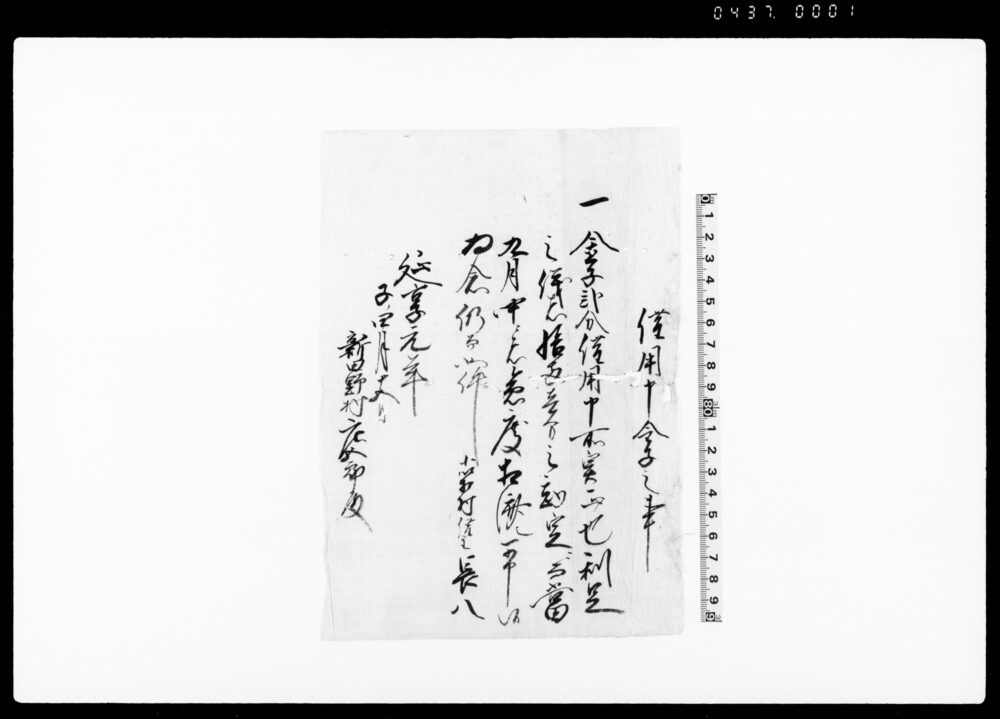 0437. 0001
借用申金子之事
一金子弐分借用申所実正也利足
之儀者拾五壱分之勘定ニ而当
九月中ニ急度相済シ可申候
為念仍而如件
小柴村借主長八
延享元年
子四月
新田野村庄次郎殿
0 1 2 3 4 5 6 7 8 9 80 1 2 3 4 5 6 7 8 9